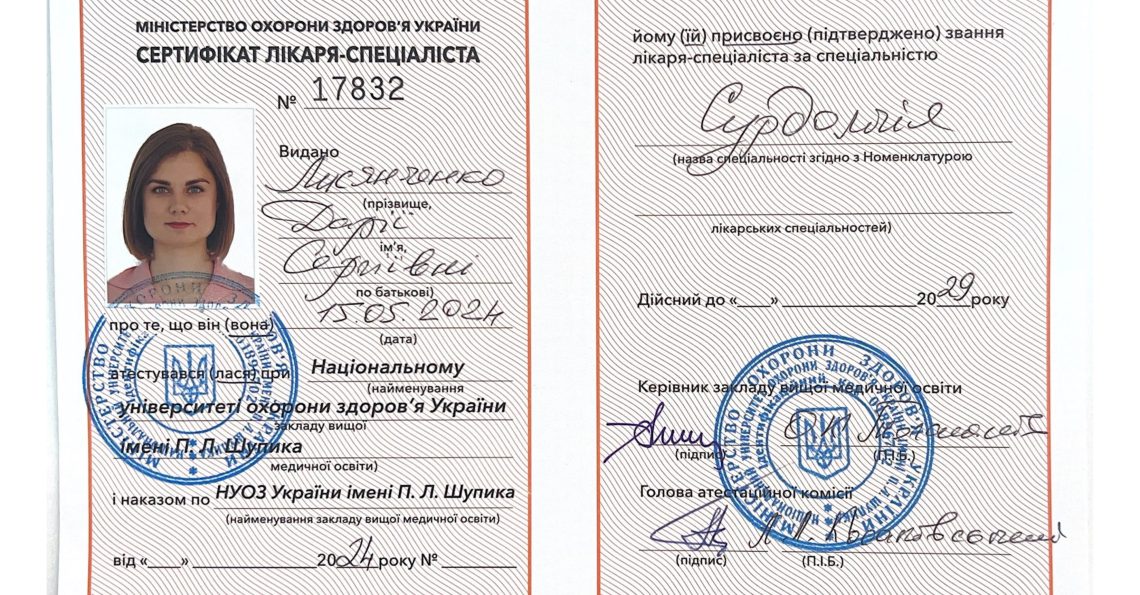 МІНІСТЕРСТВО ОХОРОНИ ЗДОРОВ'Я УКРАЇНИ
СЕРТИФІКАТ ЛІКАРЯ-СПЕЦІАЛІСТА
№ 17832
Видано Лисянченко
(прізвище,
Дарії
ім'я,
Сергіївні
по батькові)
15.05.2024
(дата)
про те, що він (вона)
атестувався (лася) при Національному
(найменування
університеті охорони здоров'я України
закладу вищої
імені П. Л. Шупика
медичної освіти)
і наказом по НУОЗ України імені П. Л. Шупика
(найменування закладу вищої медичної освіти)
від «___» 2024 року №
йому (їй) присвоєно (підтверджено) звання
лікаря-спеціаліста за спеціальністю
Сурдологія
(назва спеціальності згідно з Номенклатурою
лікарських спеціальностей)
Дійсний до «___» 2029 року
Керівник закладу вищої медичної освіти
(підпис) (П.І.Б.)
Голова атестаційної комісії
(підпис) (П.І.Б.)